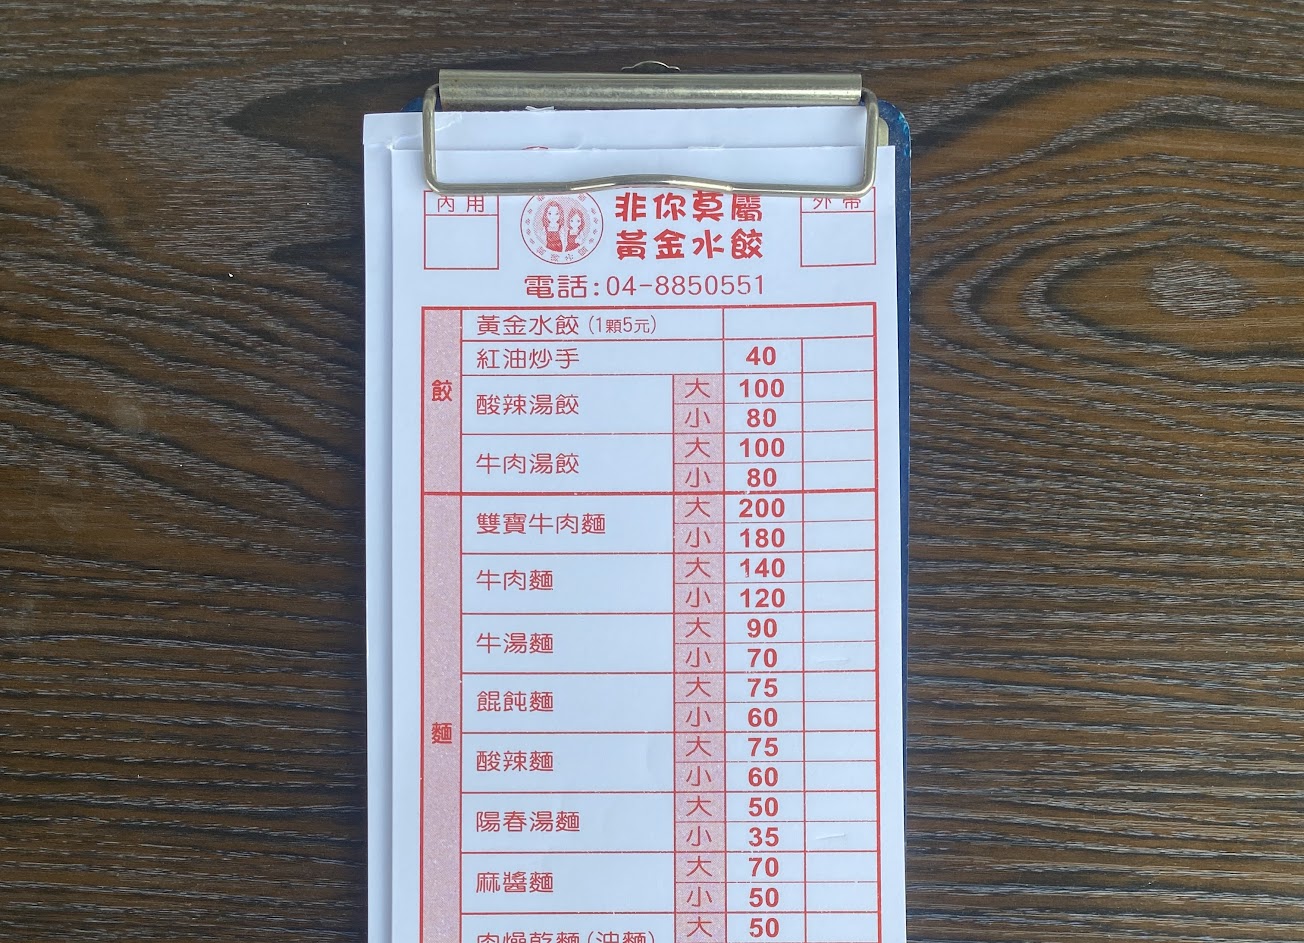 內用
非你莫屬
黃金水餃
外帶
電話:04-8850551
餃
黃金水餃(1顆5元)
紅油炒手 40
酸辣湯餃 大 100
小 80
牛肉湯餃 大 100
小 80
麵
雙寶牛肉麵 大 200
小 180
牛肉麵 大 140
小 120
牛湯麵 大 90
小 70
餛飩麵 大 75
小 60
酸辣麵 大 75
小 60
陽春湯麵 大 50
小 35
麻醬麵 大 70
小 50
肉燥乾麵(油麵) 大 50